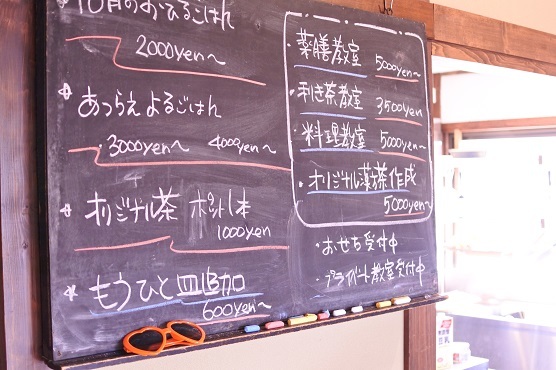 10月のおひるごはん
2000yen〜
あつらえよるごはん
・3000yen〜 4000yen〜
オリジナル茶 ポット1本
1000yen
もうひと皿追加
600yen〜
・薬膳教室 5000yen〜
・利き茶教室 3500yen〜
・料理教室 5000yen〜
・オリジナル漢茶作成
5000yen〜
・おせち受付中
・プライベート教室受付中